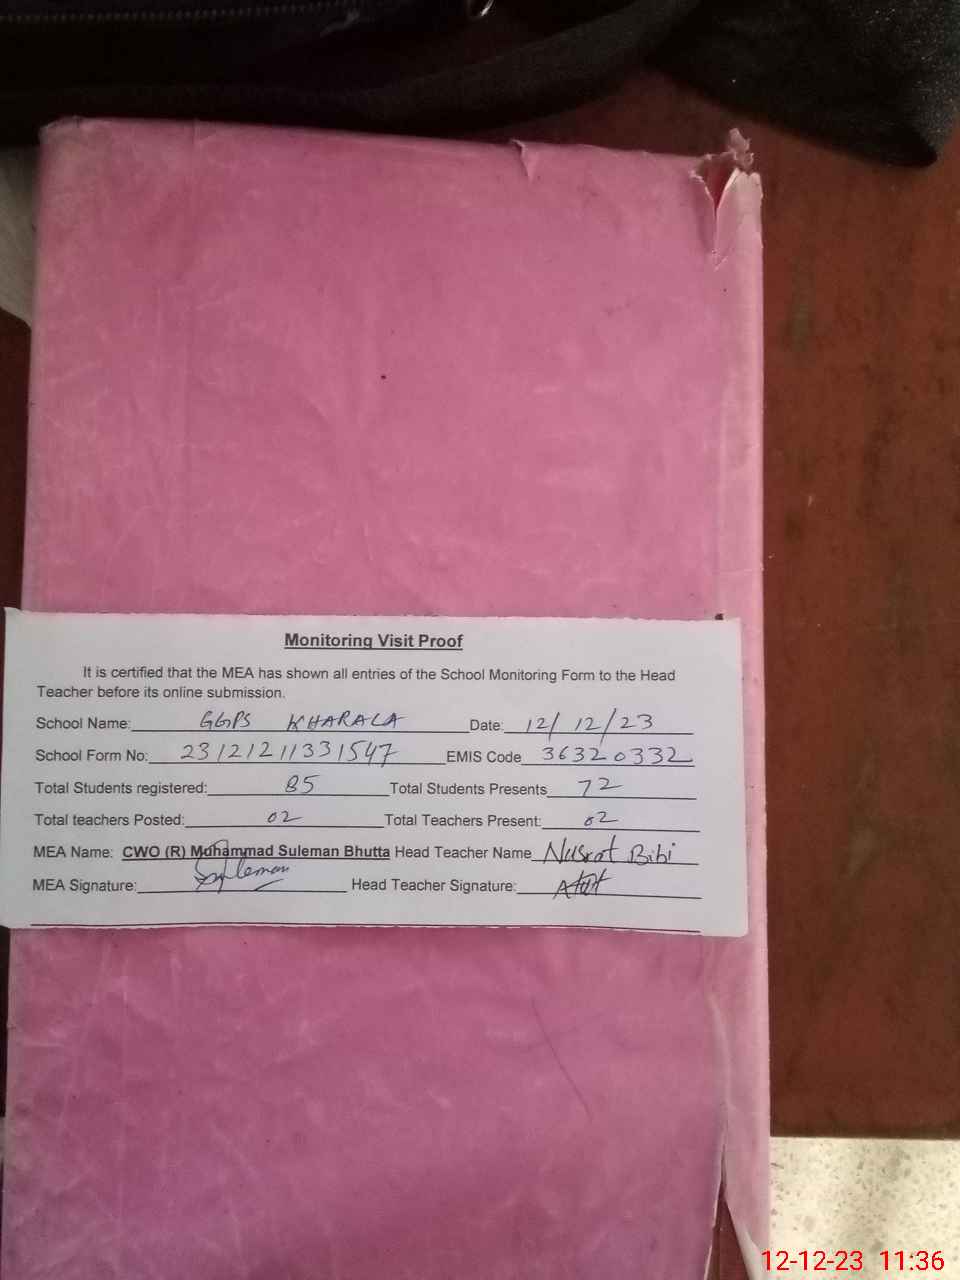 Monitoring Visit Proof
It is certified that the MEA has shown all entries of the School Monitoring Form to the Head
Teacher before its online submission.
School Name: GGPS KHARALA Date: 12/12/23
School Form No: 23121211331547 EMIS Code 36320332
Total Students registered: 85 Total Students Presents 72
Total teachers Posted: 02 Total Teachers Present: 02
MEA Name: CWO (R) Muhammad Suleman Bhutta Head Teacher Name Nusrat Bibi
MEA Signature: Suleman Head Teacher Signature:
12-12-23 11:36